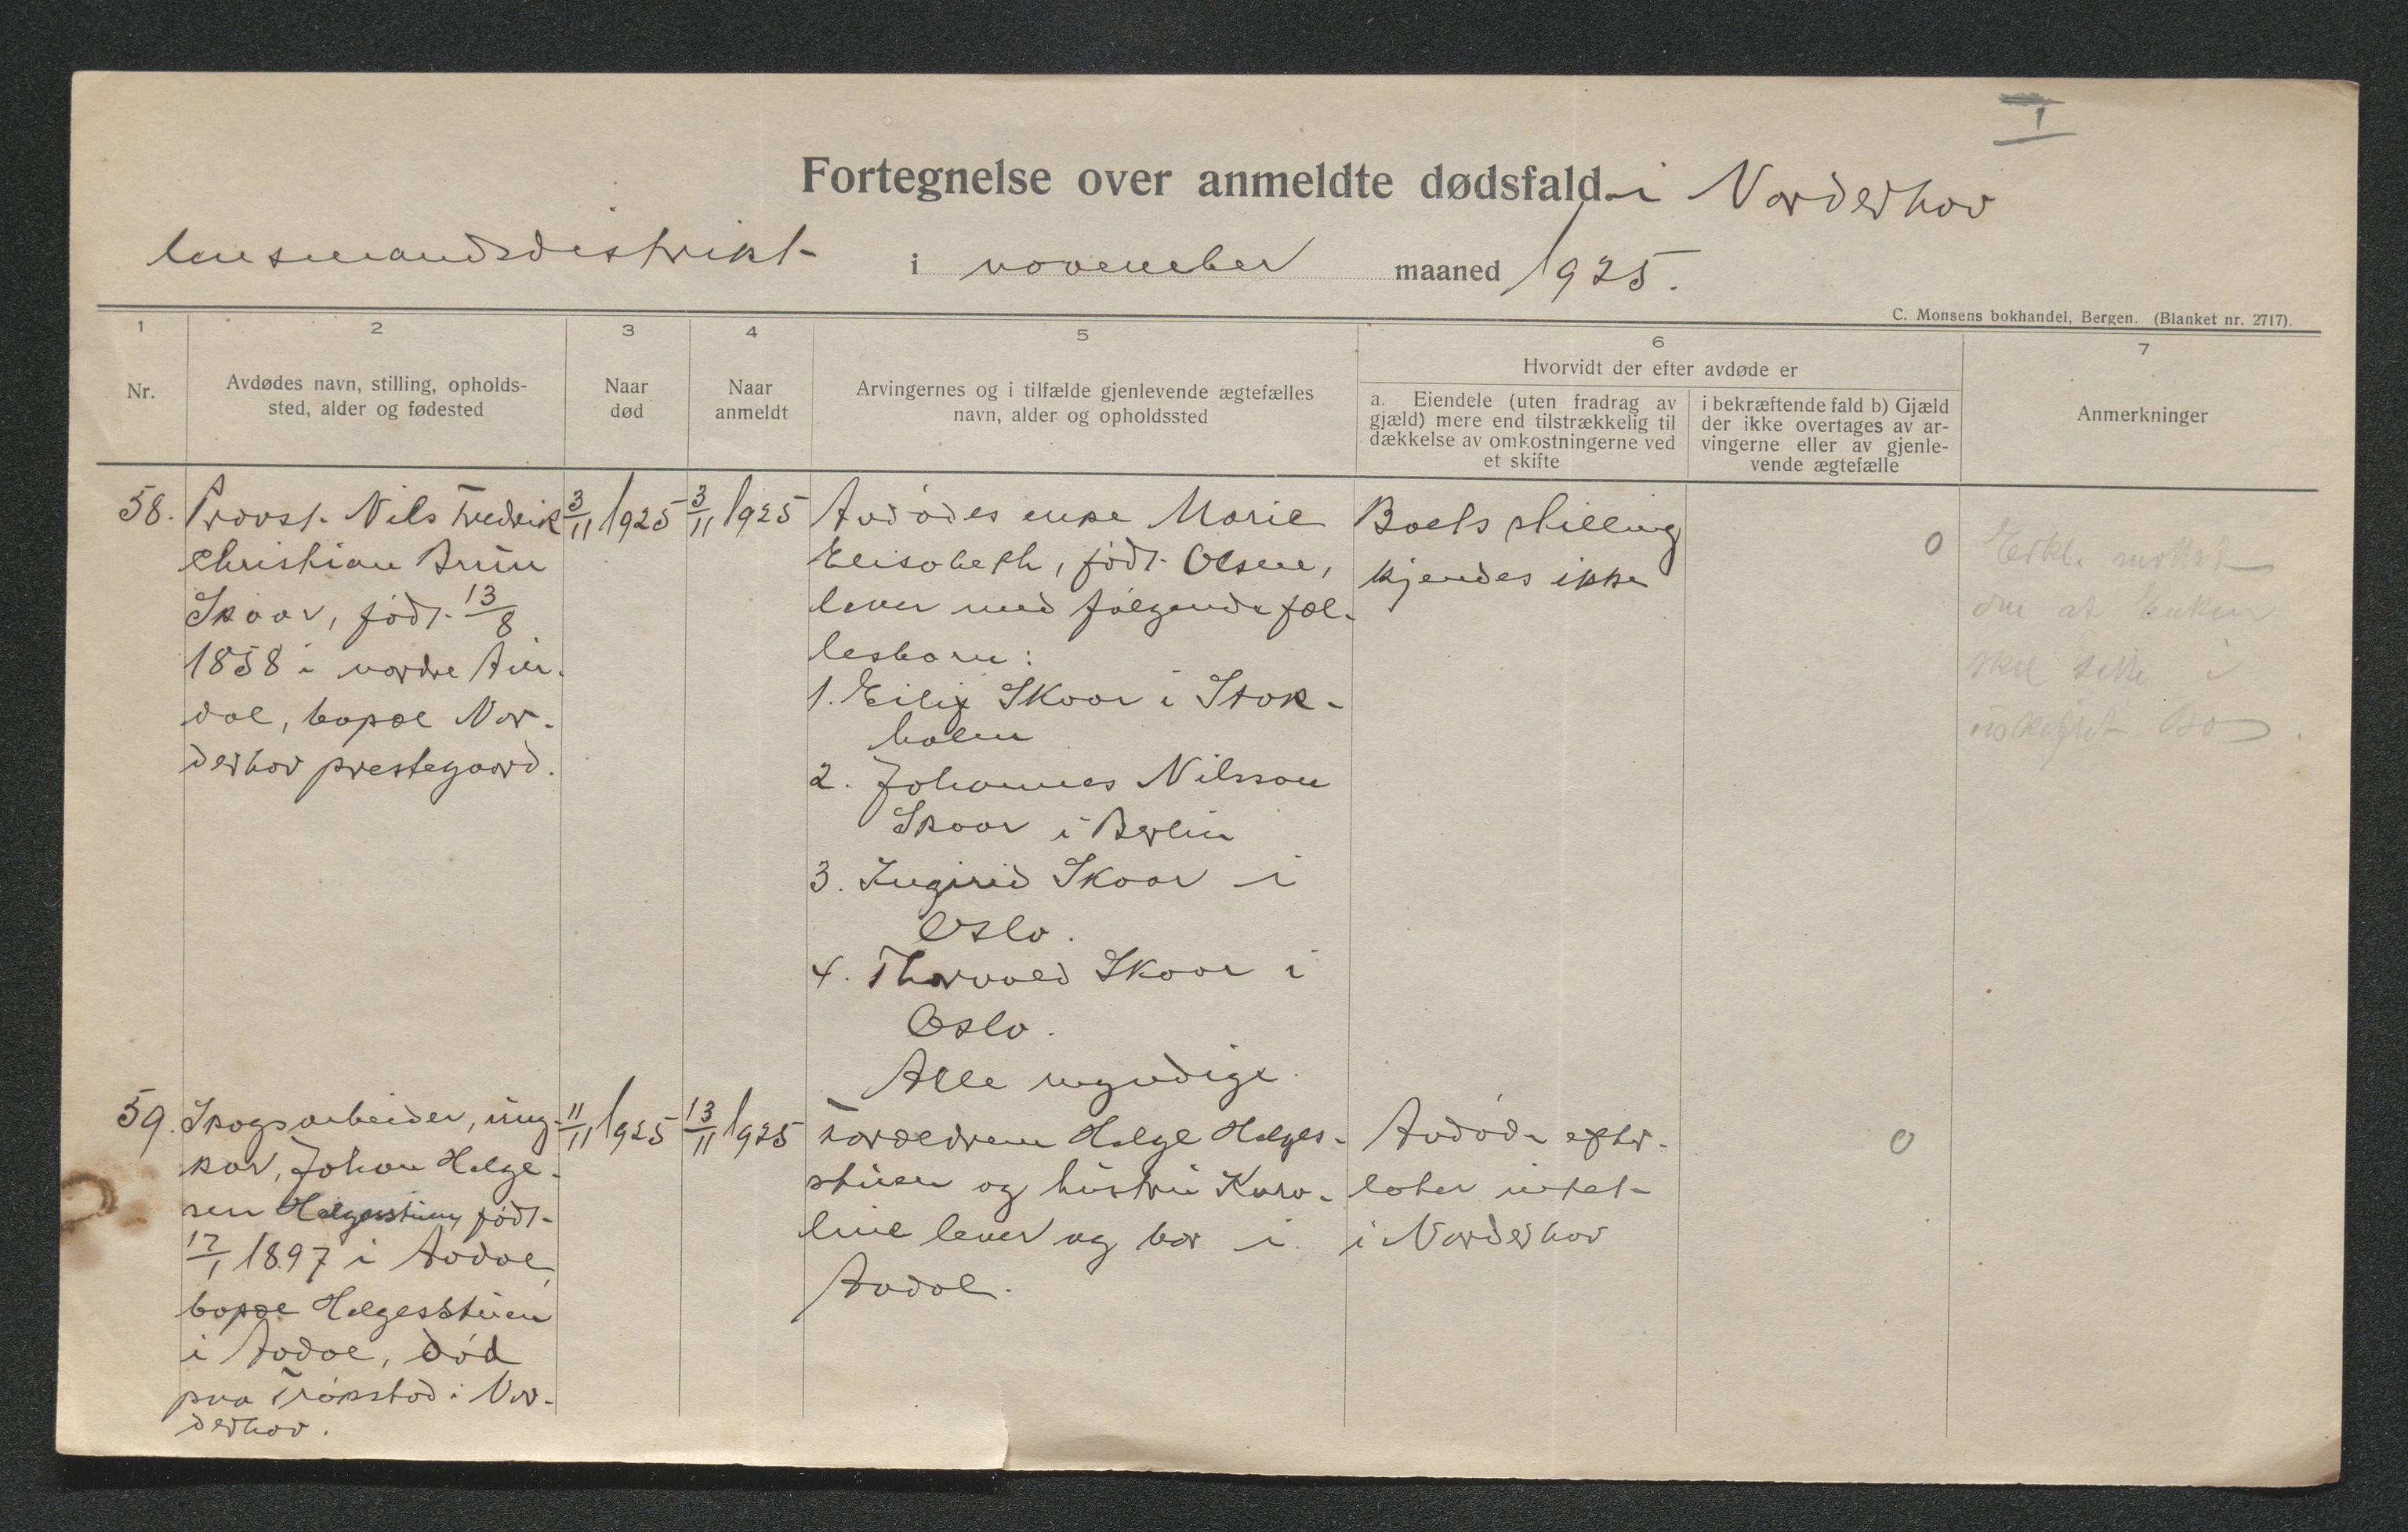 I
Fortegnelse over anmeldte dødsfald i Norderhov
lensmandsdistrikt i november maaned 1925.
C. Monsens bokhandel, Bergen. (Blanket nr. 2717).
1
2
3
4
5
6
7
Nr.
Avdødes navn, stilling, opholds-
sted, alder og fødested
Naar
død
Naar
anmeldt
Arvingernes og i tilfælde gjenlevende ægtefælles
navn, alder og opholdssted
Hvorvidt der efter avdøde er
a. Eiendele (uten fradrag av
gjæld) mere end tilstrækkelig til
dækkelse av omkostningerne ved
et skifte
i bekræftende fald b) Gjæld
der ikke overtages av ar-
vingerne eller av gjenle-
vende ægtefælle
Anmerkninger
58.
Provst Nils Fredrik
Christian Bruun
Skaar, født 13/8
1858 i nordre
dal, bopæl Nor-
derhov prestegaard.
3/11 1925
3/11 1925
Avdødes enke Marie
Elisabeth, født Olsen,
lever med følgende fæl-
lesbarn:
1. Eilif Skaar i Stok-
holm
2. Johannes Nilsson
Skaar i Berlin
3. Ingirid Skaar i
Oslo.
4. Thorvald Skaar i
Oslo.
Alle myndige.
Boets stilling
kjendes ikke
0
Erkl. mottat
om at Enken
skal sitte i
uskiftet Bo.
59.
Skogsarbeider, ung-
kar, Johan Helge-
sen Helgesstuen født
17/1 1897 i Aadal,
bopæl Helgesstuen
i Aadal, død
paa Trøkstad i Nor-
derhov.
11/11 1925
13/11 1925
Forældrene Helge Helges-
stuen og hustru Karo-
line lever og bor i
Aadal.
Avdøde efter-
later intet
i Norderhov
0